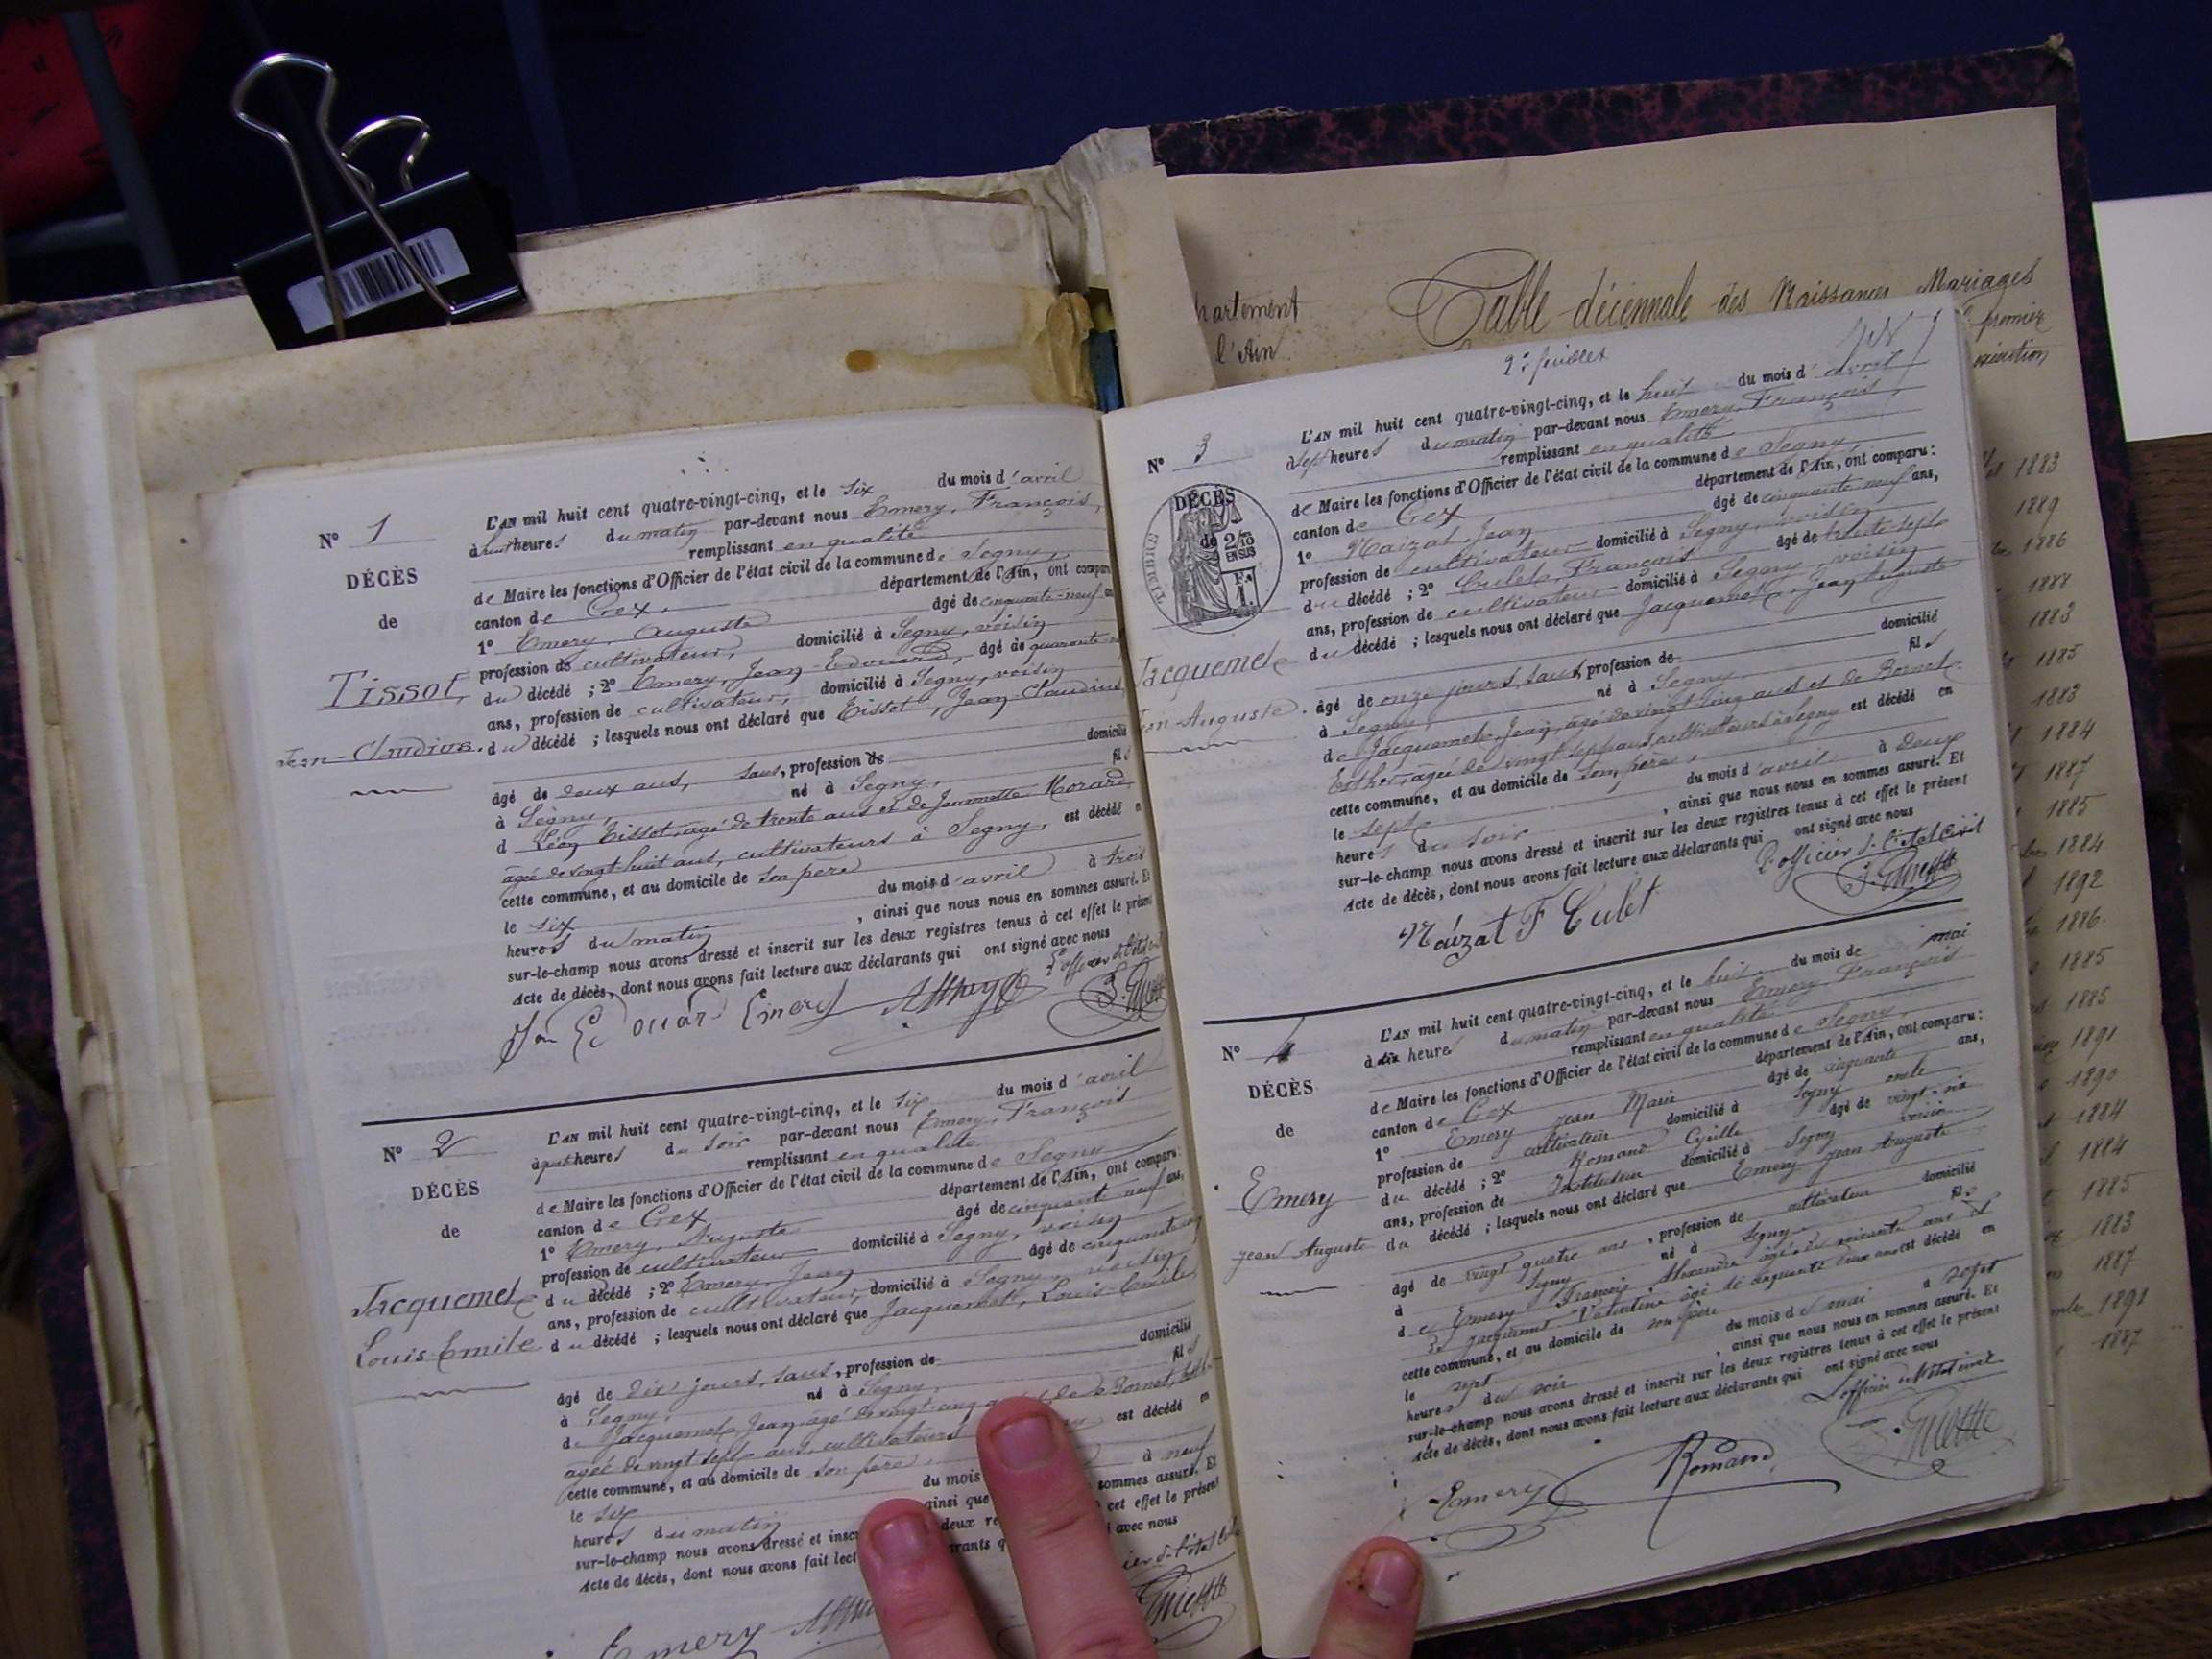 Nº 1
DÉCÈS
de
Tissot
Jean-Claudius.
L'AN mil huit cent quatre-vingt-cinq, et le six du mois d'avril
à huit heures du matin par-devant nous Emery, François,
remplissant en qualité
de Maire les fonctions d'Officier de l'état civil de la commune de Segny,
canton de Gex, département de l'Ain, ont comparu
1º Emery, Auguste âgé de cinquante-neuf
profession de cultivateur, domicilié à Segny, voisin
du décédé ; 2º Emery, Jean-Edouard, âgé de quarante
ans, profession de cultivateur, domicilié à Segny, voisin
du décédé ; lesquels nous ont déclaré que Tissot, Jean-Claudius,
âgé de deux ans, sans, profession de domicilié
à Segny, né à Segny, fils
d Léon Tissot, agé de trente ans et de Jeannette Morard,
agée de vingt-huit ans, cultivateurs à Segny, est décédé
cette commune, et au domicile de son père
le six du mois d'avril à trois
heures du matin, ainsi que nous nous en sommes assuré. Et
sur-le-champ nous avons dressé et inscrit sur les deux registres tenus à cet effet le présent
Acte de décès, dont nous avons fait lecture aux déclarants qui ont signé avec nous
Emery
Nº 2
DÉCÈS
de
Jacquemet
Louis-Emile
L'AN mil huit cent quatre-vingt-cinq, et le six du mois d'avril
heures du soir par-devant nous Emery, François
remplissant en qualité
de Maire les fonctions d'Officier de l'état civil de la commune de Segny
canton de Gex département de l'Ain, ont comparu:
1º Emery, Auguste âgé de cinquante neuf ans,
profession de cultivateur domicilié à Segny, voisin
du décédé ; 2º Emery, Jean âgé de cinquante
ans, profession de cultivateur, domicilié à Segny, voisin
du décédé ; lesquels nous ont déclaré que Jacquemet, Louis-Emile
âgé de dix jours, sans, profession de domicilié
à Segny, né à Segny, fils
de Jacquemet, Jean, agé de vingt cinq de Bornet,
agée de vingt sept ans, cultivateurs est décédé en
cette commune, et au domicile de son père
le six du mois à neuf
heures du matin ainsi que sommes assuré. Et
sur-le-champ nous avons dressé et inscr deux re cet effet le présent
Acte de décès, dont nous avons fait lect avec nous
Emery
partement
l'Ain
Table décennale des Naissances Mariages
premier
2e feuillet
Nº 3
DÉCÈS
de
TIMBRE
2/10
EN SUS
Jacquemet
Jean-Auguste.
L'AN mil huit cent quatre-vingt-cinq, et le huit du mois d'avril
à sept heures du matin par-devant nous Emery, François,
remplissant en qualité
de Maire les fonctions d'Officier de l'état civil de la commune de Segny
canton de Gex département de l'Ain, ont comparu:
1º Maizat, Jean âgé de cinquante-neuf ans,
profession de cultivateur domicilié à Segny, voisin
du décédé ; 2º Culet, François âgé de trente sept
ans, profession de cultivateur domicilié à Segny, voisin
du décédé ; lesquels nous ont déclaré que Jacquemet, Jean Auguste
âgé de onze jours, sans, profession de domicilié
à Segny, né à Segny fils
de Jacquemet, Jean, agé de vingt cinq ans et de Bornet
Esther, agée de vingt sept ans, cultivateurs à Segny est décédé en
cette commune, et au domicile de son père,
le sept du mois d'avril à deux
heures du soir, ainsi que nous nous en sommes assuré. Et
sur-le-champ nous avons dressé et inscrit sur les deux registres tenus à cet effet le présent
Acte de décès, dont nous avons fait lecture aux déclarants qui ont signé avec nous
L'officier de l'état civil
Maizat F Culet
Nº 4
DÉCÈS
de
Emery
Jean Auguste
L'AN mil huit cent quatre-vingt-cinq, et le huit du mois de mai
à six heures du matin par-devant nous Emery, François
remplissant en qualité
de Maire les fonctions d'Officier de l'état civil de la commune de Segny,
canton de Gex département de l'Ain, ont comparu:
1º Emery Jean Marie âgé de cinquante ans,
profession de cultivateur domicilié à Segny oncle
du décédé ; 2º Romand Cyrille âgé de vingt-six
ans, profession de Instituteur domicilié à Segny voisin
du décédé ; lesquels nous ont déclaré que Emery Jean Auguste
âgé de vingt quatre ans, profession de cultivateur domicilié
à Segny né à Segny fils
de Emery François Alexandre agé de soixante ans et
de Jacquemet Valentine agée de cinquante deux ans est décédé en
cette commune, et au domicile de son père
le sept du mois de mai à sept
heures du soir, ainsi que nous nous en sommes assuré. Et
sur-le-champ nous avons dressé et inscrit sur les deux registres tenus à cet effet le présent
Acte de décès, dont nous avons fait lecture aux déclarants qui ont signé avec nous
L'officier de l'état civil
Emery Romand
1883
1889
1886
1888
1883
1885
1883
1884
1887
1885
1884
1892
1886
1885
1885
1891
1890
1884
1884
1885
1883
1887
1891
1887